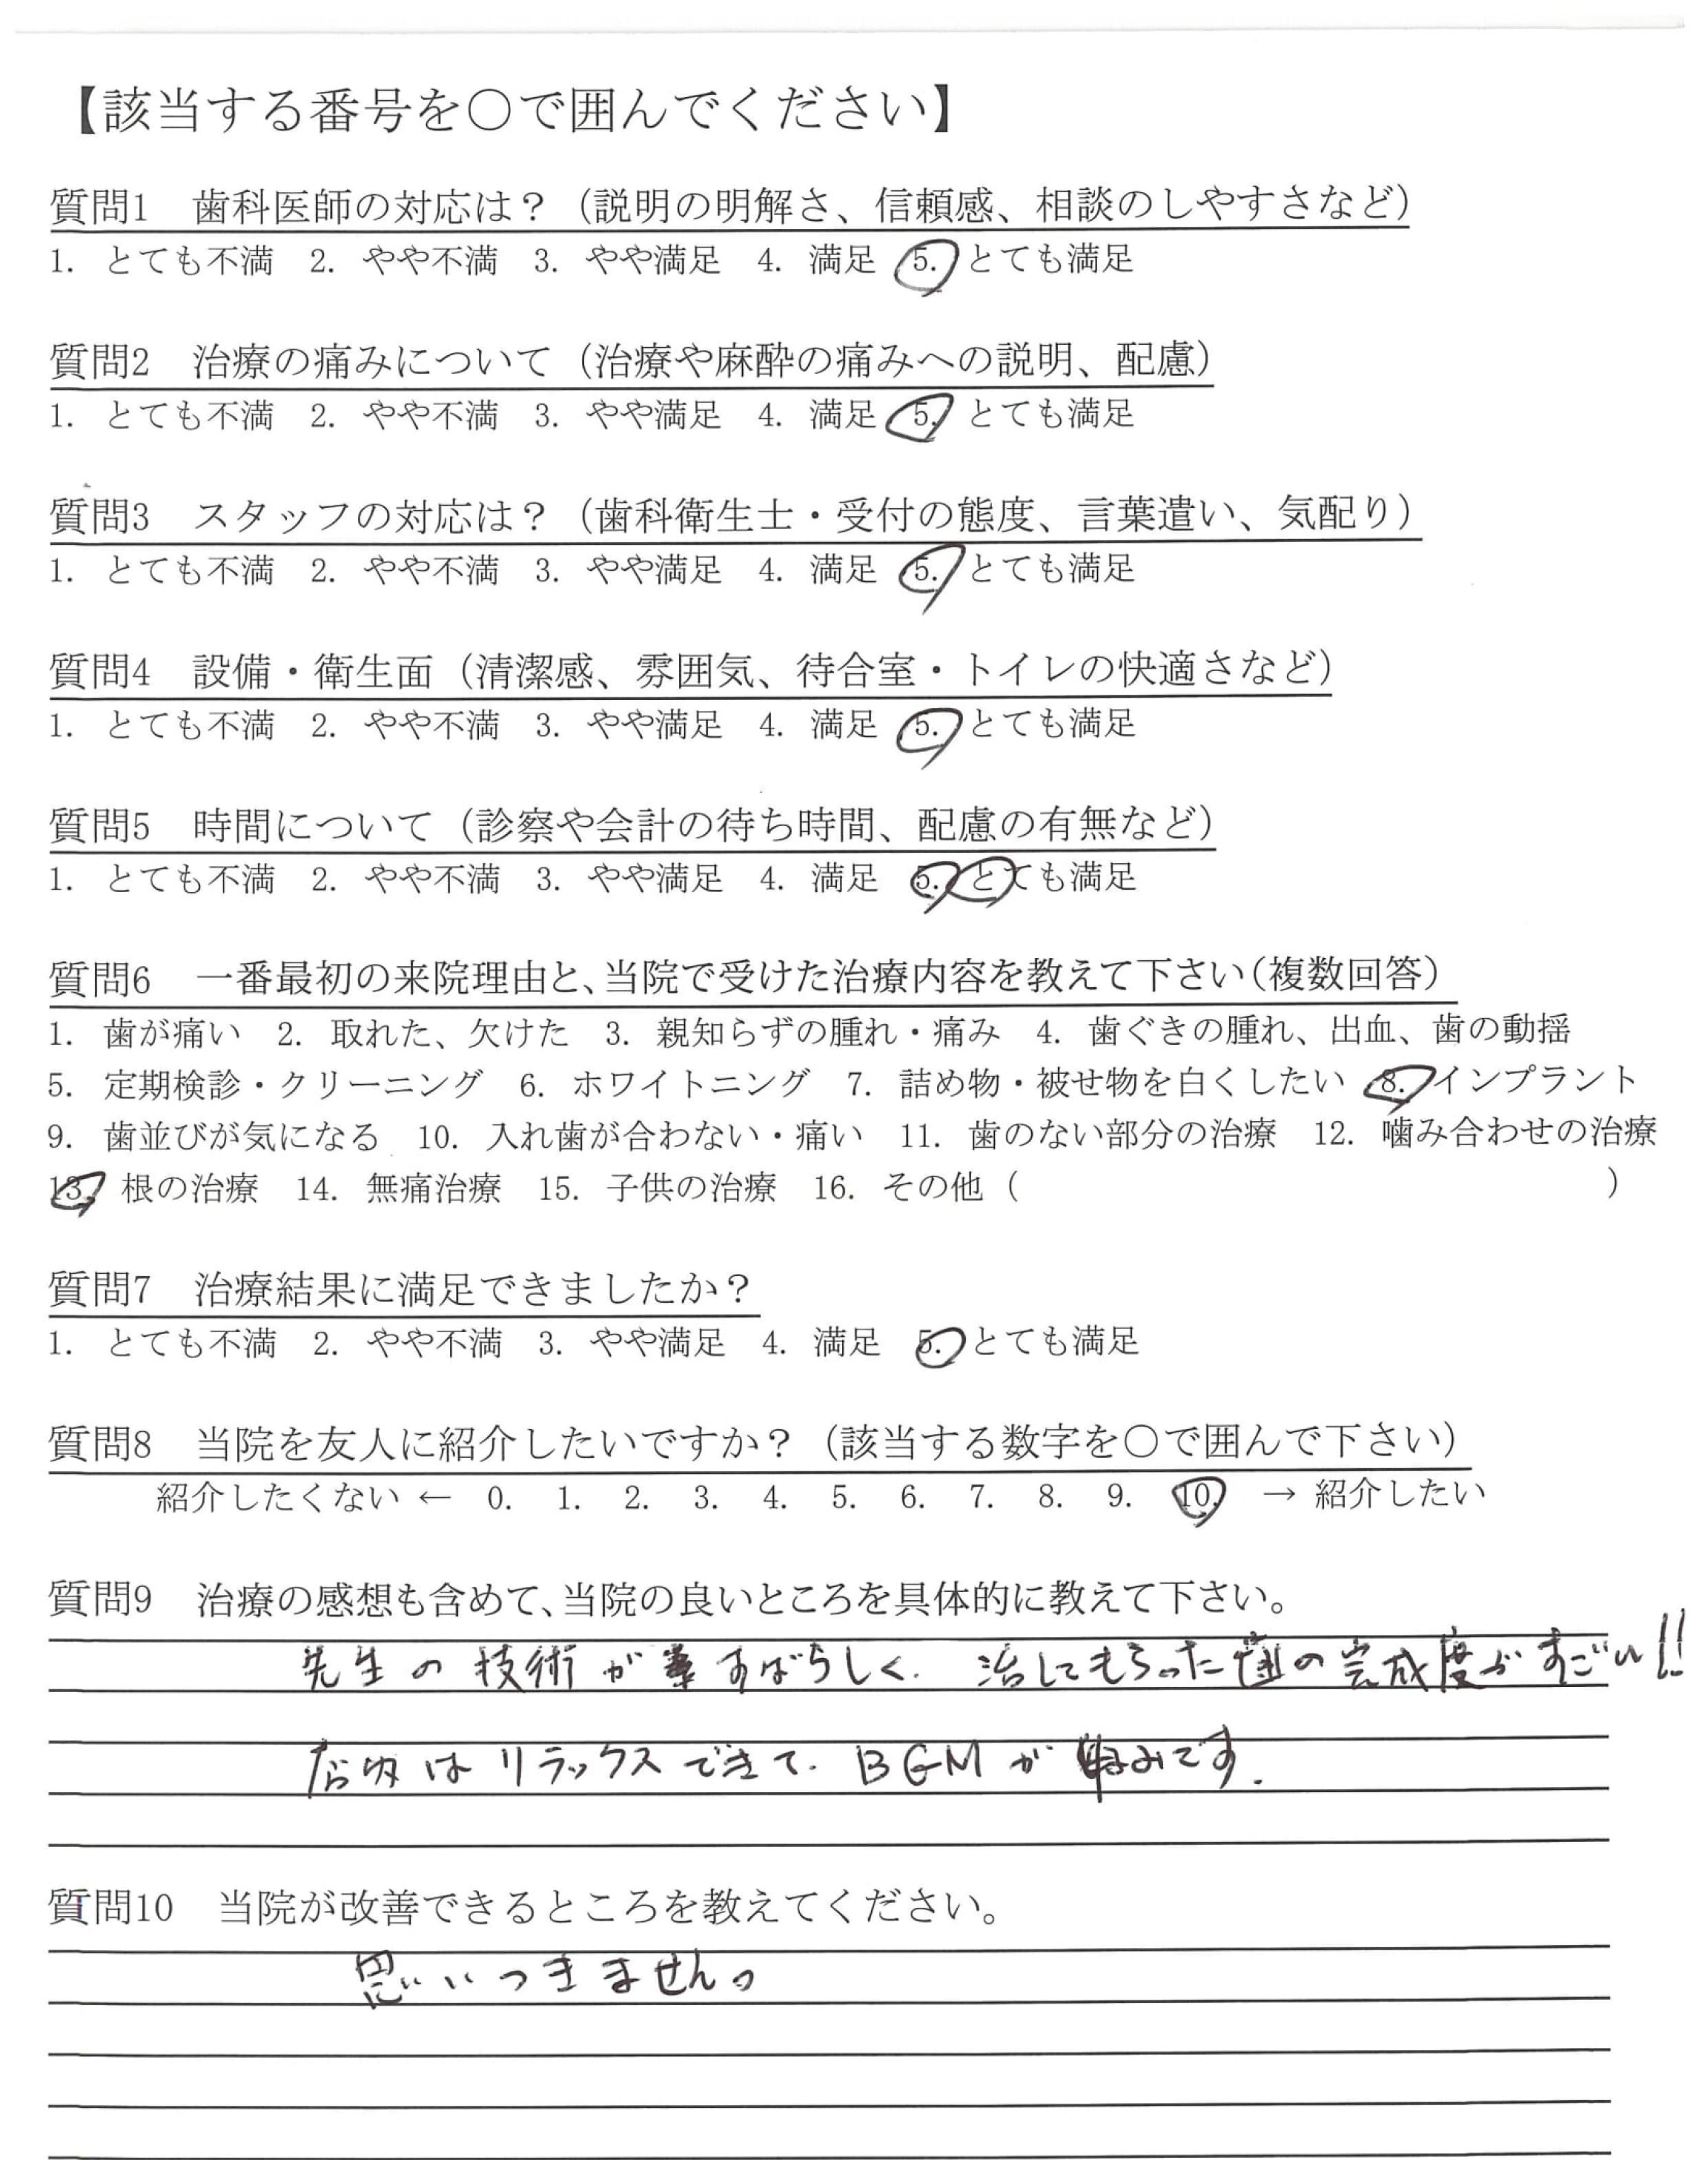 【該当する番号を〇で囲んでください】
質問1　歯科医師の対応は？（説明の明解さ、信頼感、相談のしやすさなど）
1. とても不満　2. やや不満　3. やや満足　4. 満足　5. とても満足
質問2　治療の痛みについて（治療や麻酔の痛みへの説明、配慮）
1. とても不満　2. やや不満　3. やや満足　4. 満足　5. とても満足
質問3　スタッフの対応は？（歯科衛生士・受付の態度、言葉遣い、気配り）
1. とても不満　2. やや不満　3. やや満足　4. 満足　5. とても満足
質問4　設備・衛生面（清潔感、雰囲気、待合室・トイレの快適さなど）
1. とても不満　2. やや不満　3. やや満足　4. 満足　5. とても満足
質問5　時間について（診察や会計の待ち時間、配慮の有無など）
1. とても不満　2. やや不満　3. やや満足　4. 満足　5. とても満足
質問6　一番最初の来院理由と、当院で受けた治療内容を教えて下さい（複数回答）
1. 歯が痛い　2. 取れた、欠けた　3. 親知らずの腫れ・痛み　4. 歯ぐきの腫れ、出血、歯の動揺
5. 定期検診・クリーニング　6. ホワイトニング　7. 詰め物・被せ物を白くしたい　8. インプラント
9. 歯並びが気になる　10. 入れ歯が合わない・痛い　11. 歯のない部分の治療　12. 噛み合わせの治療
13. 根の治療　14. 無痛治療　15. 子供の治療　16. その他（　　　）
質問7　治療結果に満足できましたか？
1. とても不満　2. やや不満　3. やや満足　4. 満足　5. とても満足
質問8　当院を友人に紹介したいですか？（該当する数字を〇で囲んで下さい）
紹介したくない ← 0. 1. 2. 3. 4. 5. 6. 7. 8. 9. 10. → 紹介したい
質問9　治療の感想も含めて、当院の良いところを具体的に教えて下さい。
先生の技術がすばらしく. 治してもらった歯の完成度がすごい!!
店内はリラックスできて. BGMが です.
質問10　当院が改善できるところを教えてください。
思いつきません。